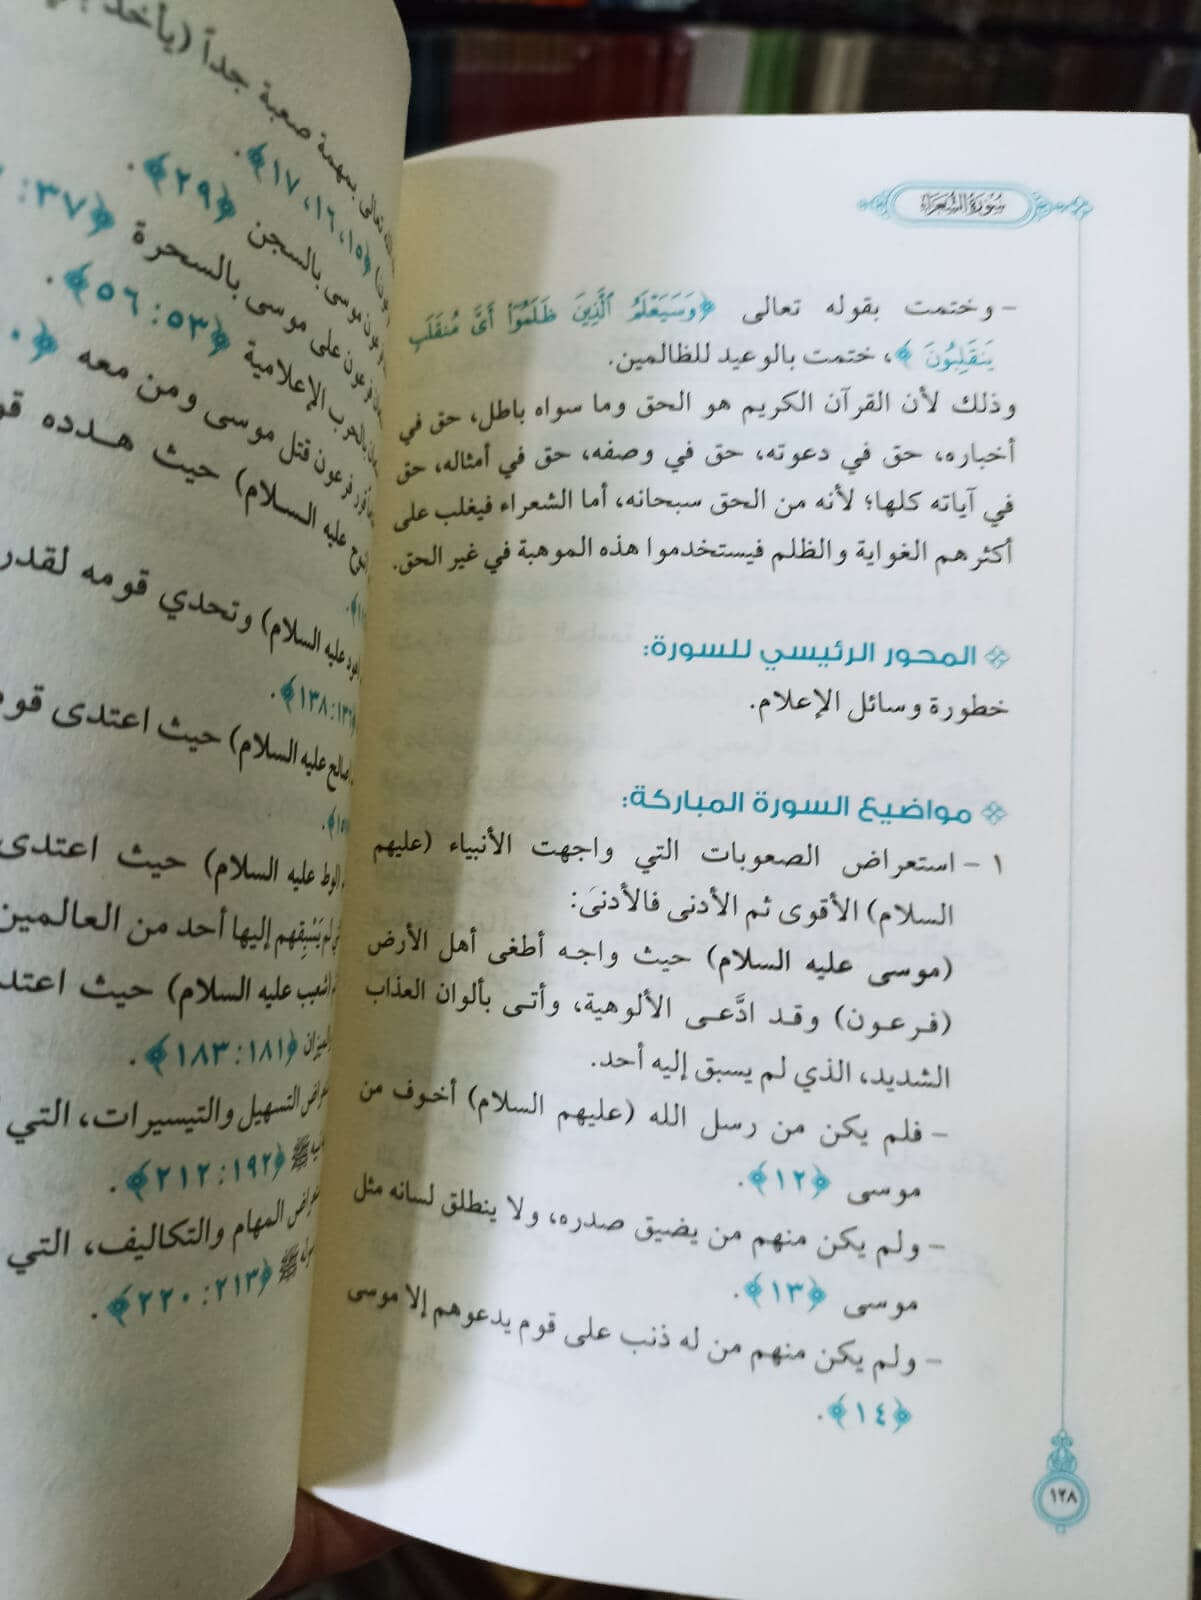 سورة الشعراء
- وختمت بقوله تعالى ﴿وَسَيَعْلَمُ ٱلَّذِينَ ظَلَمُوٓا۟ أَىَّ مُنقَلَبٍ
يَنقَلِبُونَ﴾، ختمت بالوعيد للظالمين.
وذلك لأن القرآن الكريم هو الحق وما سواه باطل، حق في
أخباره، حق في دعوته، حق في وصفه، حق في أمثاله، حق
في آياته كلها؛ لأنه من الحق سبحانه، أما الشعراء فيغلب على
أكثرهم الغواية والظلم فيستخدموا هذه الموهبة في غير الحق.
المحور الرئيسي للسورة:
خطورة وسائل الإعلام.
مواضيع السورة المباركة:
١ - استعراض الصعوبات التي واجهت الأنبياء (عليهم
السلام) الأقوى ثم الأدنى فالأدنىَ:
(موسى عليه السلام) حيث واجه أطغى أهل الأرض
(فرعون) وقد ادَّعى الألوهية، وأتى بألوان العذاب
الشديد، الذي لم يسبق إليه أحد.
- فلم يكن من رسل الله (عليهم السلام) أخوف من
موسى ﴿١٢﴾.
- ولم يكن منهم من يضيق صدره، ولا ينطلق لسانه مثل
موسى ﴿١٣﴾.
- ولم يكن منهم من له ذنب على قوم يدعوهم إلا موسى
﴿١٤﴾.
١٢٨
تعالى بمهمة صعبة جداً (يأخذ
﴿١٥، ١٦، ١٧﴾.
موسى بالسجن ﴿٢٩﴾.
فرعون على موسى بالسحرة ﴿٣٧:
بالحرب الإعلامية ﴿٥٣: ٥٦﴾.
فرعون قتل موسى ومن معه ﴿
عليه السلام) حيث هدده
عليه السلام) وتحدي قومه لقدر
١٣٨﴾.
صالح عليه السلام) حيث اعتدى
لوط عليه السلام) حيث اعتدى
لم يَسْبِقهم إليها أحد من العالمين
شعيب عليه السلام) حيث اعتد
الميزان ﴿١٨١: ١٨٣﴾.
التسهيل والتيسيرات، التي
ﷺ ﴿١٩٢: ٢١٢﴾.
المهام والتكاليف، التي
ﷺ ﴿٢١٣: ٢٢٠﴾.